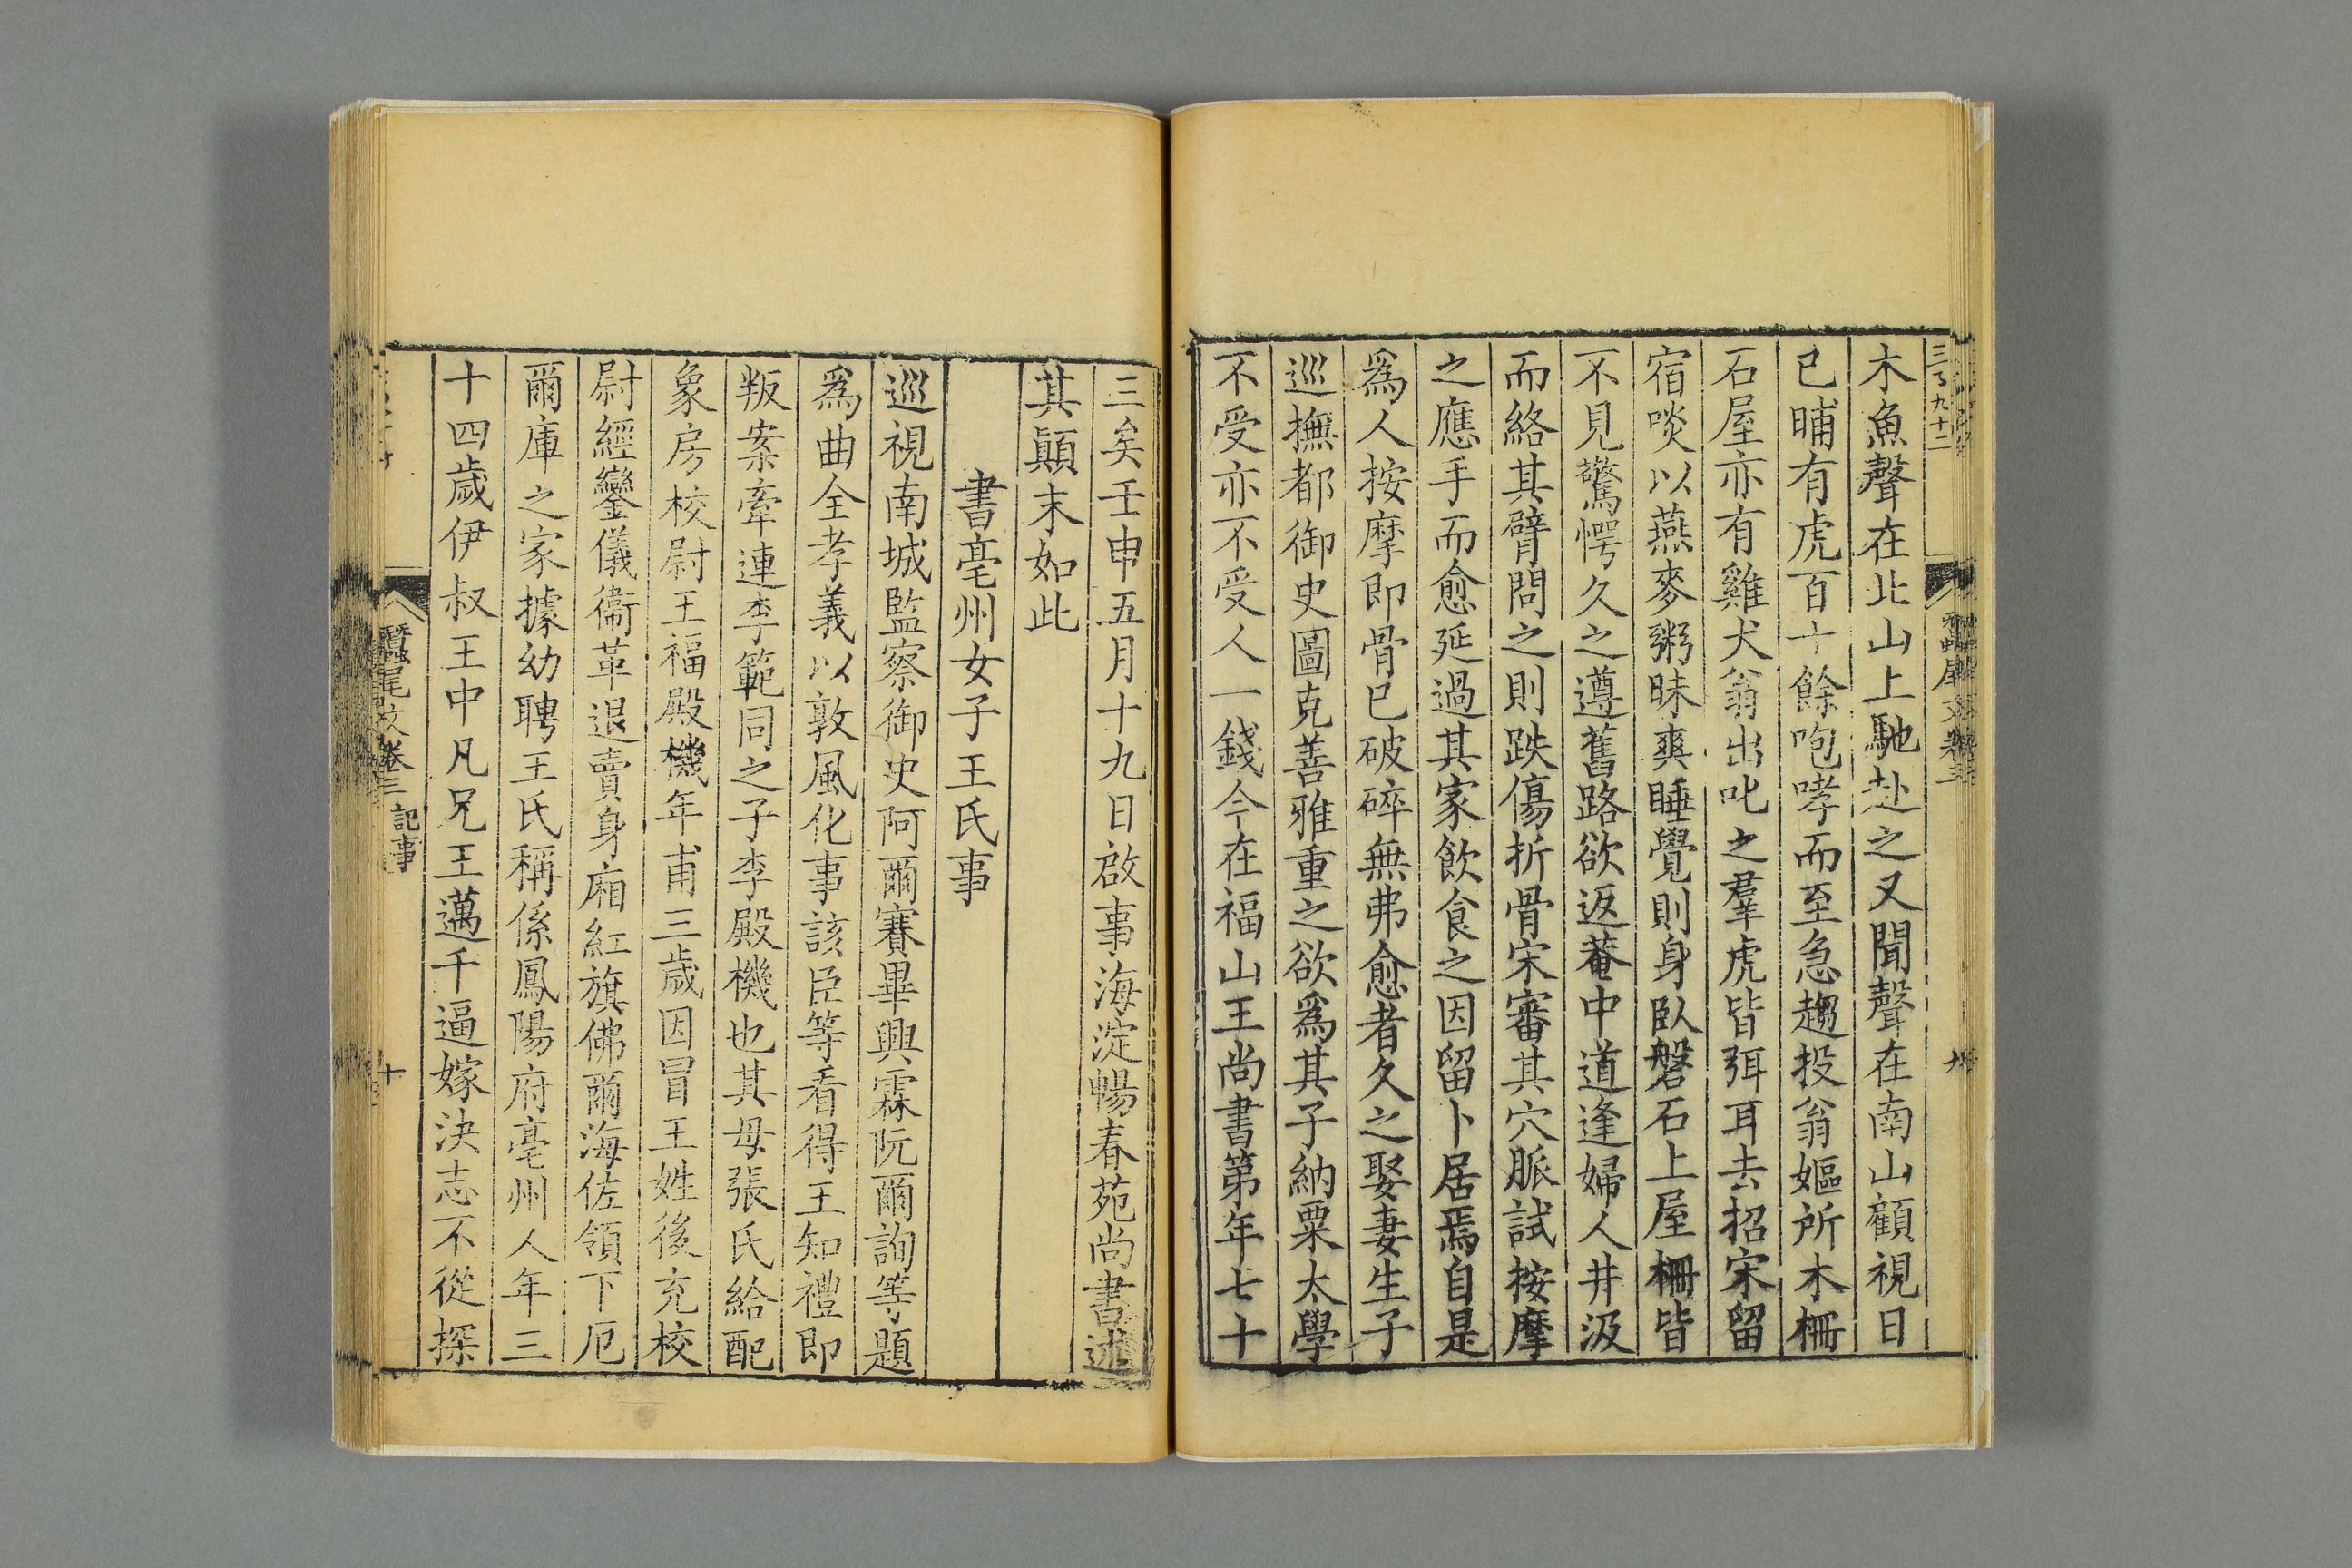 木魚聲在北山上馳赴之又聞聲在南山顧視日
已晡有虎百十餘咆哮而至急趨投翁嫗所木柵
石屋亦有雞犬翁出叱之羣虎皆弭耳去招宋留
宿啖以燕麥粥昧爽睡覺則身臥磐石上屋柵皆
不見驚愕久之遵舊路欲返菴中道逢婦人井汲
而絡其臂問之則跌傷折骨宋審其穴脈試按摩
之應手而愈延過其家飲食之因留卜居焉自是
爲人按摩即骨已破碎無弗愈者久之娶妻生子
巡撫都御史圖克善雅重之欲爲其子納粟太學
不受亦不受人一錢今在福山王尚書第年七十
三矣壬申五月十九日啟事海淀暢春苑尚書述
其顛末如此
書亳州女子王氏事
巡視南城監察御史阿爾賽畢興霖阮爾詢等題
爲曲全孝義以敦風化事該臣等看得王知禮即
叛案牽連李範同之子李殿機也其母張氏給配
象房校尉王福殿機年甫三歲因冒王姓後充校
尉經鑾儀衞革退賣身廂紅旗佛爾海佐領下厄
爾庫之家據幼聘王氏稱係鳳陽府亳州人年三
十四歲伊叔王中凡兄王邁千逼嫁決志不從探
蠶尾文卷三 記事
十